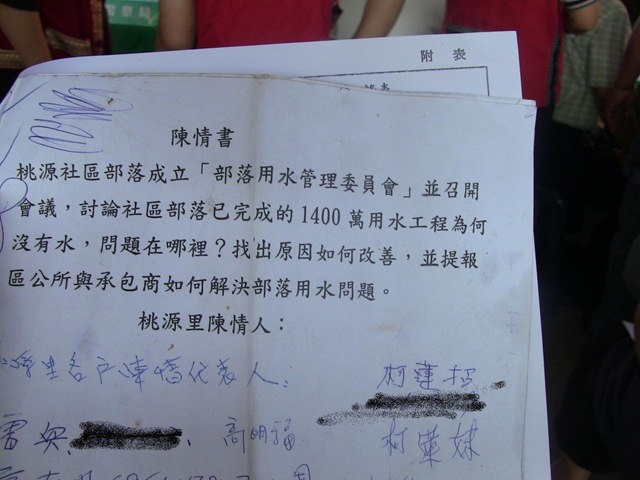 附 表
陳情書
桃源社區部落成立「部落用水管理委員會」並召開
會議，討論社區部落已完成的1400萬用水工程為何
沒有水，問題在哪裡？找出原因如何改善，並提報
區公所與承包商如何解決部落用水問題。
桃源里陳情人：
里各戶陳情代表人：
高明福